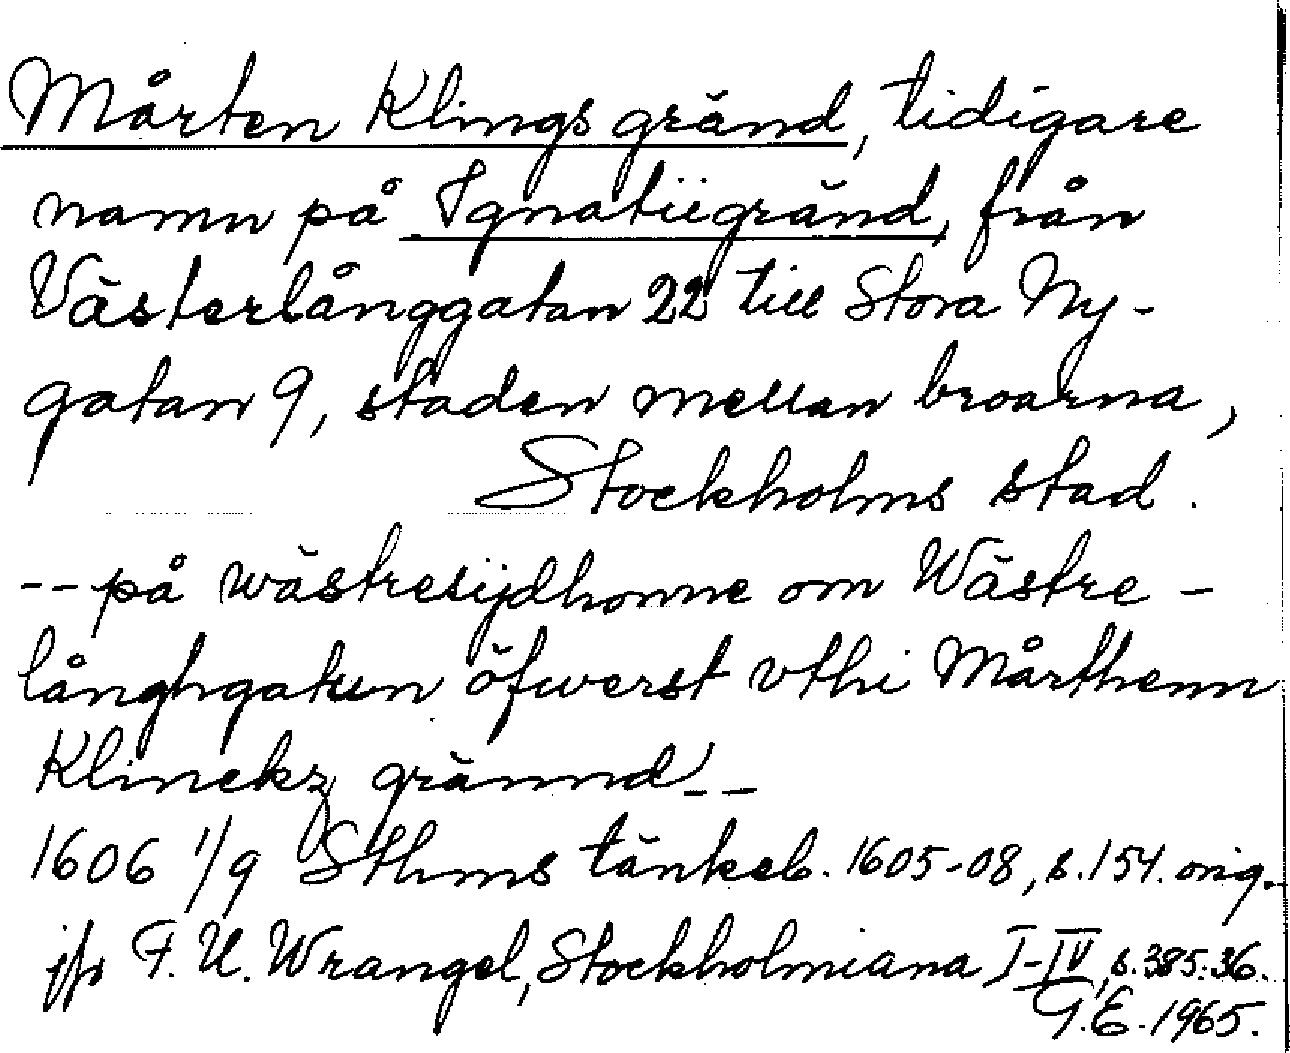 Mårten Klings gränd, tidigare
namn på Ignatiigränd, från
Västerlånggatan 22 till Stora Ny-
gatan 9, staden mellan broarna,
Stockholms stad.
-- på wästresijdhonne om Wästre-
långhgatun öfwerst vthi Mårthenn
Klinckz grännd --
1606 1/9 Sthms tänkeb. 1605-08, s. 154. orig.
jfr F. U. Wrangel, Stockholmiana I-IV, s. 385. 36.
G. E. 1965.